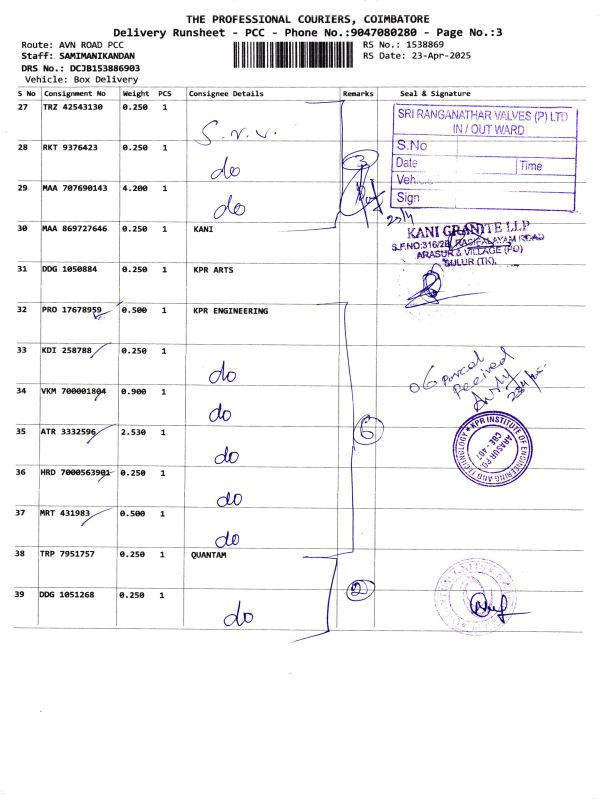 THE PROFESSIONAL COURIERS, COIMBATORE
Delivery Runsheet - PCC - Phone No.:9047080280 - Page No.:3
Route: AVN ROAD PCC RS No.: 1538869
Staff: SAMIMANIKANDAN RS Date: 23-Apr-2025
DRS No.: DCJB153886903
Vehicle: Box Delivery
S No Consignment No Weight PCS Consignee Details Remarks Seal & Signature
27 TRZ 42543130 0.250 1 S.r.v.
28 RKT 9376423 0.250 1 do
29 MAA 707690143 4.200 1 do
3
SRI RANGANATHAR VALVES (P) LTD
IN / OUT WARD
S.No
Date Time
Vehi
Sign
30 MAA 869727646 0.250 1 KANI
KANI GRANITE LLP
S.F.NO:316/2B, RASIPALAYAM ROAD
ARASUR & VILLAGE (PO)
SULUR (TK).
31 DDG 1050884 0.250 1 KPR ARTS
32 PRO 17678959 0.500 1 KPR ENGINEERING
33 KDI 258788 0.250 1 do
34 VKM 700001804 0.900 1 do
06 Parcel
Received
35 ATR 3332596 2.530 1 do 6
KPR INSTITUTE OF ENGINEERING AND TECHNOLOGY
ARASUR PO
CBE - 407
36 HRD 7000563901 0.250 1 do
37 MRT 431983 0.500 1 do
38 TRP 7951757 0.250 1 QUANTAM
2
39 DDG 1051268 0.250 1 do